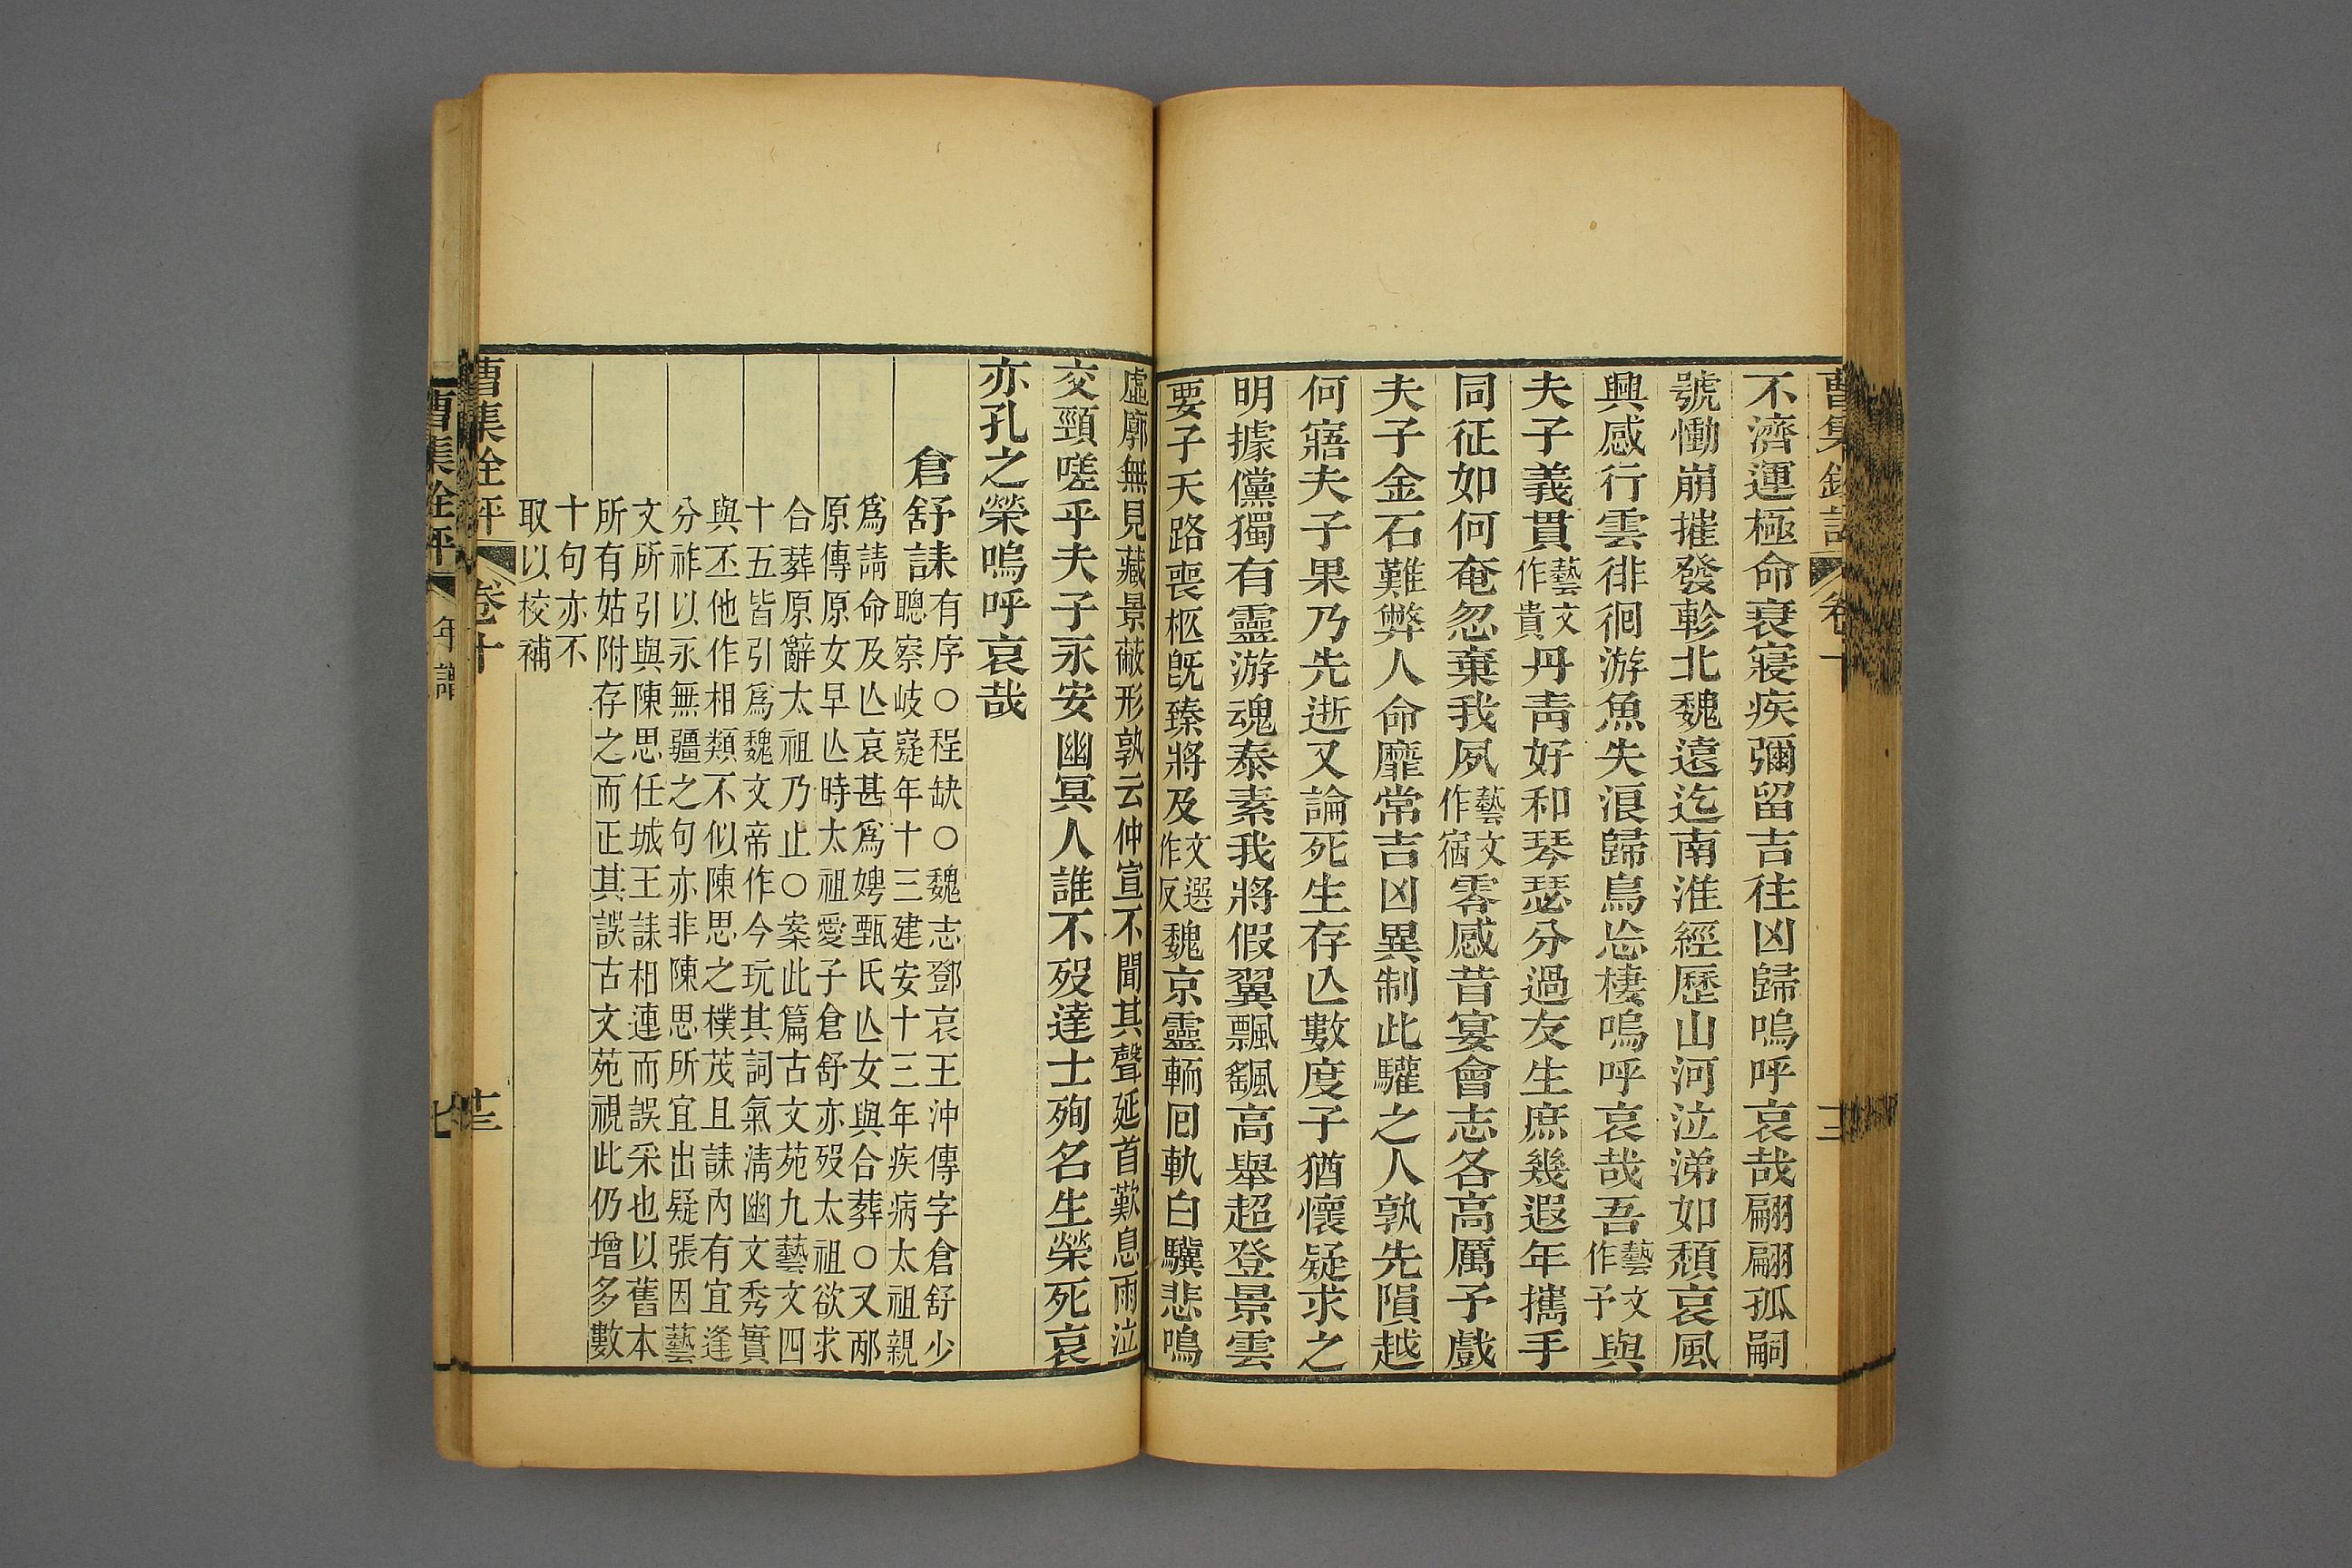 不濟運極命衰寢疾彌留吉往凶歸嗚呼哀哉翩翩孤嗣
號慟崩摧發軫北魏遠迄南淮經歷山河泣涕如頹哀風
興感行雲徘徊游魚失浪歸鳥忘棲嗚呼哀哉吾藝文作予與
夫子義貫藝文作貴丹青好和琴瑟分過友生庶幾遐年攜手
同征如何奄忽棄我夙藝文作宿零感昔宴會志各高厲予戲
夫子金石難弊人命靡常吉凶異制此驩之人孰先隕越
何寤夫子果乃先逝又論死生存亾數度子猶懷疑求之
明據儻獨有靈游魂泰素我將假翼飄颻高舉超登景雲
要子天路喪柩旣臻將及文選作反魏京靈輀回軌白驥悲鳴
虛廓無見藏景蔽形孰云仲宣不聞其聲延首歎息雨泣
交頸嗟乎夫子永安幽冥人誰不歿達士殉名生榮死哀
亦孔之榮嗚呼哀哉
倉舒誄有序○程缺○魏志鄧哀王沖傳字倉舒少
聰察岐嶷年十三建安十三年疾病太祖親
爲請命及亾哀甚爲娉甄氏亾女與合葬○又邴
原傳原女早亾時太祖愛子倉舒亦歿太祖欲求
合葬原辭太祖乃止○案此篇古文苑九藝文四
十五皆引爲魏文帝作今玩其詞氣清幽文秀實
與丕他作相類不似陳思之樸茂且誄內有宜逢
分祚以永無疆之句亦非陳思所宜出疑張因藝
文所引與陳思任城王誄相連而誤采也以舊本
所有姑附存之而正其誤古文苑視此仍增多數
十句亦不
取以校補
曹集銓評
卷十
十三
曹集銓評
年譜
七